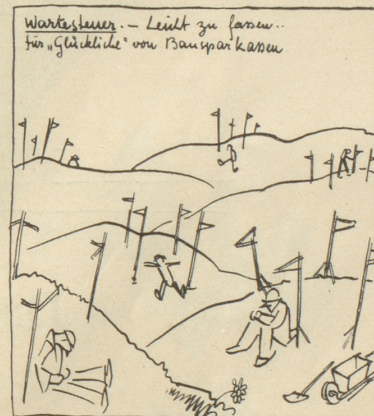 Wartesteuer. – Leicht zu fassen..
für „Glückliche" von Bausparkassen